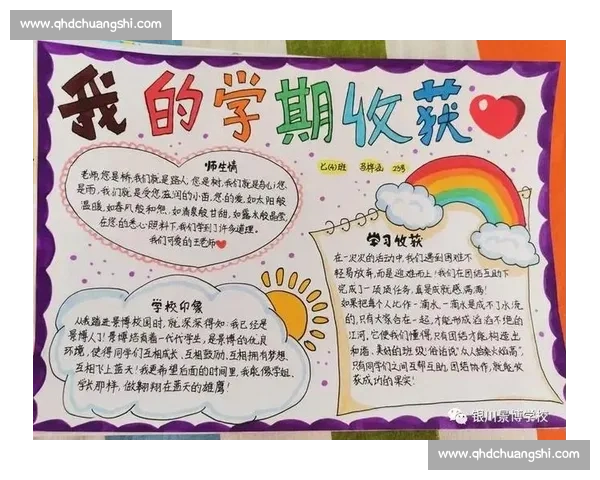 www.qhdchuangshi.com
我的学期收获
七(4)班
师生情
老师,您是桥,我们就是路人,您是树,我们就是鸟;您
是雨,我们就是受您滋润的小苗,您的爱,如太阳般
温暖,如春风般和煦,如清泉般甘甜,如露水般晶莹,
在您的悉心照料下,我们学到了许多道理。
我们可爱的王老师
学习收获
在一次次的活动中,我们遇到困难不
轻易放弃,而是迎难而上!我们在团结互助下
完成了一项项任务,真是成就感满满!
如果把每个人比作一滴水,一滴水是成不了水流
的,只有大家合在一起,才能形成滔滔不绝的
江河,它使我们懂得,只有团结才能构造出
和谐、美好的班级!俗话说:"众人拾柴火焰高",
只有同学们之间互帮互助,团结协作,就能收
获成功的果实!
学校印像
从我踏进景博校园时,就深深得知:我已经是
景博人了!景博培育着一代代学生,是景博的优良
环境,使得同学们互相成长,互相鼓励,互相拥有梦想,
互相飞上蓝天!我更希望后面的时间里,我能像学姐、
学长那样,做翱翔在蓝天的雄鹰!
银川景博学校
www.qhdchuangshi.com